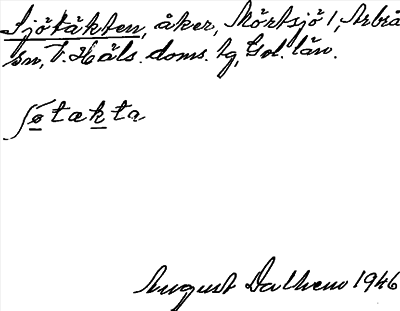 Sjötäkten, åker, Mörtsjö 1, Arbrå
sn, V. Häls. doms. tg, Gvl. län.
ʃøtækta
August Dalhem 1946